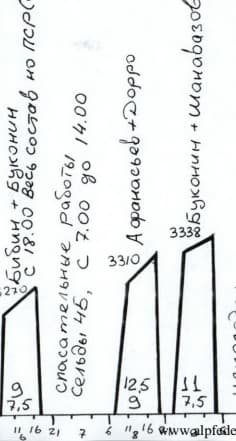 Бибин + Буконин
с 18.00 весь состав но ПСР(
Спасательные работы
Сельды 4Б, с 7.00 до 14.00
Афанасьев + Дорро
Буконин + Шанавазов
3270
3310
3338
9
7,5
12,5
9
11
7,5
11 6 16 21 7 6 11 8 16
www.alpfede